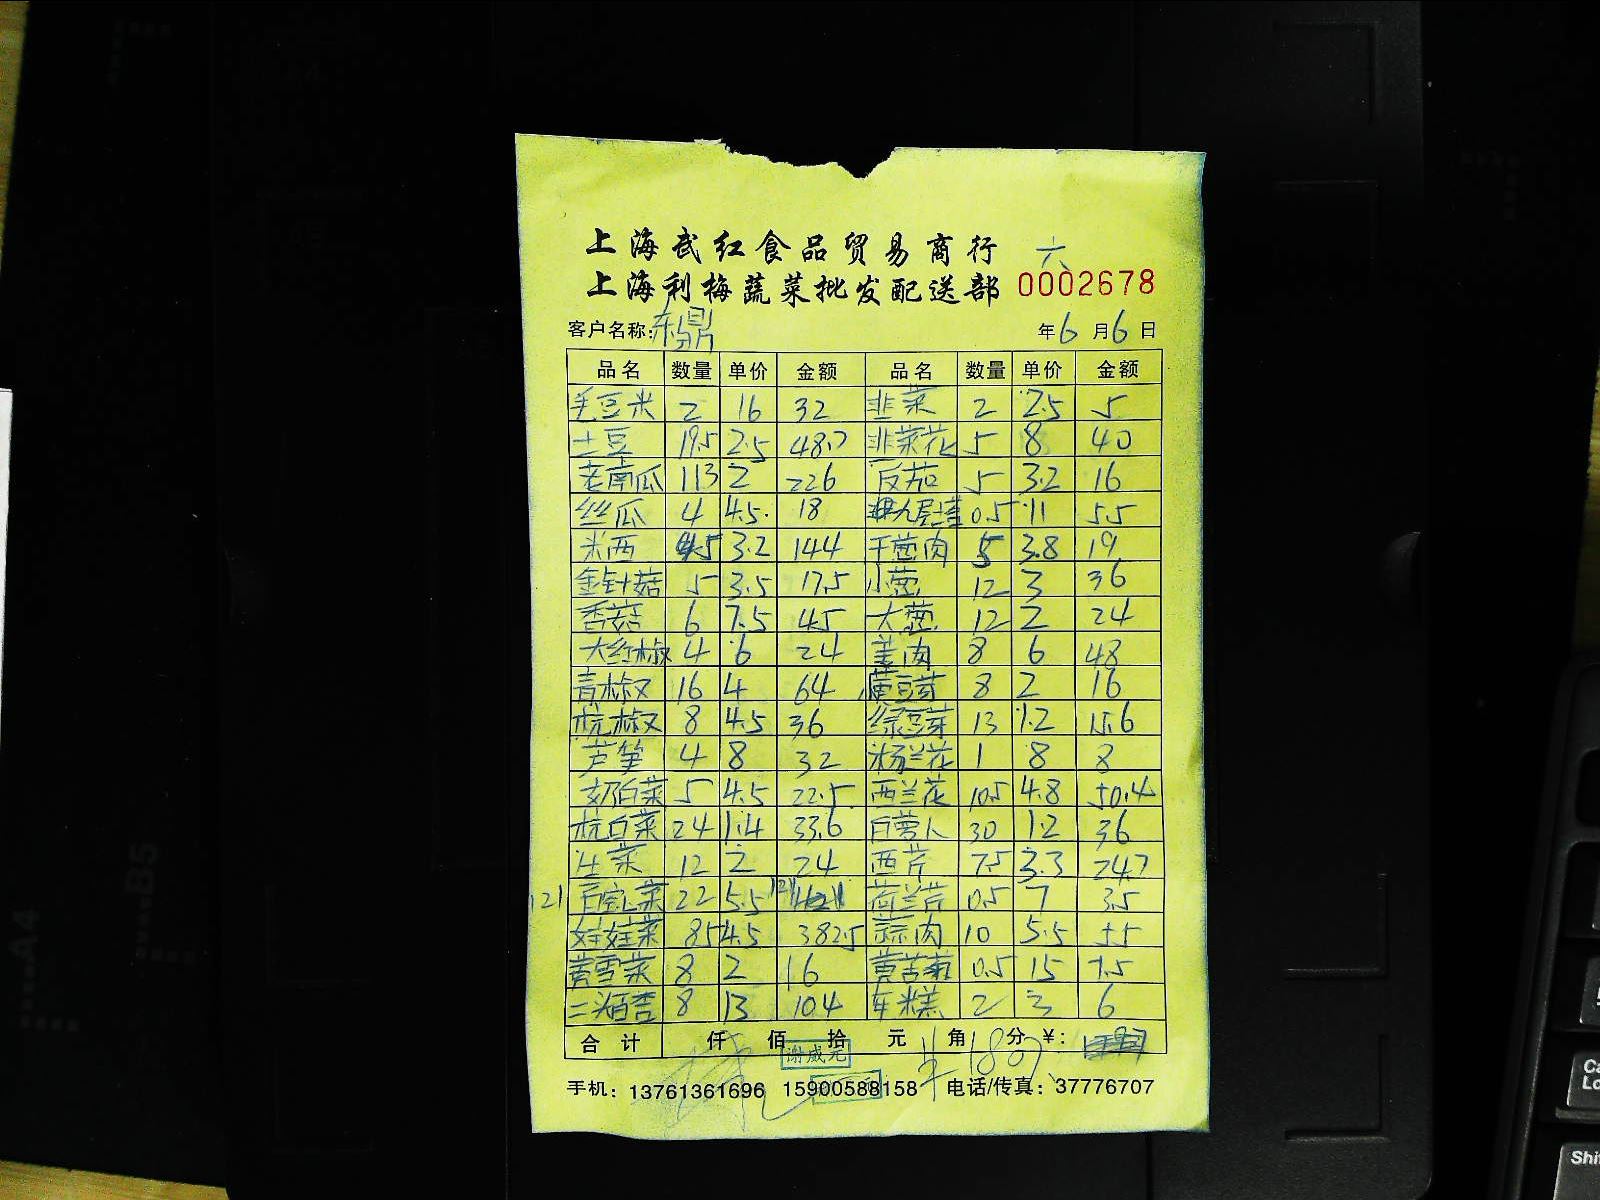 六
上海武红食品贸易商行
上海利梅蔬菜批发配送部 0002678
客户名称: 东鼎 年6月6日
品名 数量 单价 金额 品名 数量 单价 金额
毛豆米 2 16 32 韭菜 2 2.5 5
土豆 19.5 2.5 48.7 韭菜花 5 8 40
老南瓜 113 2 226 反茄 5 3.2 16
丝瓜 4 4.5 18 九层塔 0.5 11 5.5
米西 45 3.2 144 干葱肉 5 3.8 19
金针菇 5 3.5 17.5 小葱 12 3 36
香菇 6 7.5 45 大葱 12 2 24
大红椒 4 6 24 姜肉 8 6 48
青椒 16 4 64 黄豆芽 8 2 16
杭椒 8 4.5 36 绿豆芽 13 1.2 15.6
芦笋 4 8 32 兰花 1 8 8
奶白菜 5 4.5 22.5 西兰花 10.5 4.8 50.4
杭白菜 24 1.4 33.6 白萝卜 30 1.2 36
生菜 12 2 24 西芹 7.5 3.3 24.7
121 菜 22 5.5 121 荷兰芹 0.5 7 3.5
娃娃菜 85 4.5 382.5 蒜肉 10 5.5 55
黄雪菜 8 2 16 黄苦菊 0.5 15 7.5
8 13 104 年糕 2 3 6
合计 仟 佰 拾 元 角 分 ¥:
谢威元
手机: 13761361696 15900588158 电话/传真: 37776707